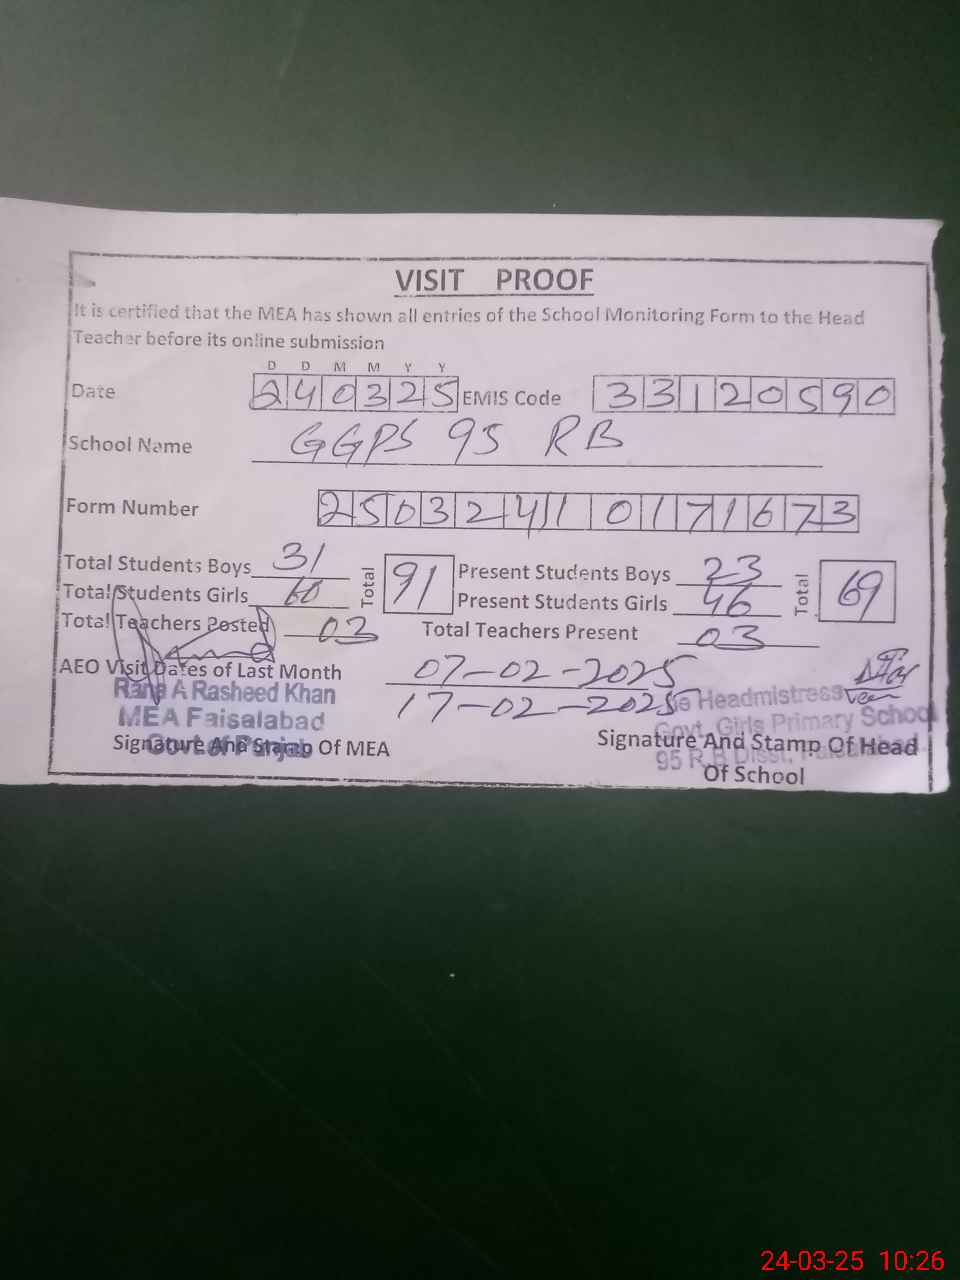 VISIT PROOF
It is certified that the MEA has shown all entries of the School Monitoring Form to the Head
Teacher before its online submission
D D M M Y Y
Date 240325 EMIS Code 33120590
School Name GGPS 95 RB
Form Number 250324110171673
Total Students Boys 31 Total 91 Present Students Boys 23 Total 69
Total Students Girls 60 Present Students Girls 46
Total Teachers Posted 03 Total Teachers Present 03
AEO Visit Dates of Last Month 07-02-2025
17-02-2025
Rana A Rasheed Khan
MEA Faisalabad
Govt of Punjab
Signature And Stamp Of MEA
Headmistress
Govt. Girls Primary School
95 R.B Disst.
Signature And Stamp Of Head
Of School
24-03-25 10:26